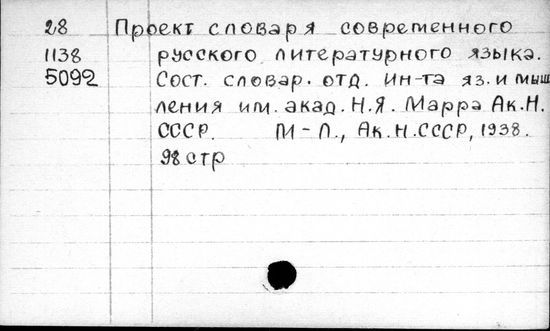 28 Проект словаря современного
1138 русского литературного языка.
5092 Сост. словар. отд. Ин-та яз. и мыш
ления им. акад. Н.Я. Марра Ак. Н.
СССР. М-Л., Ак. Н. СССР, 1938.
98 стр